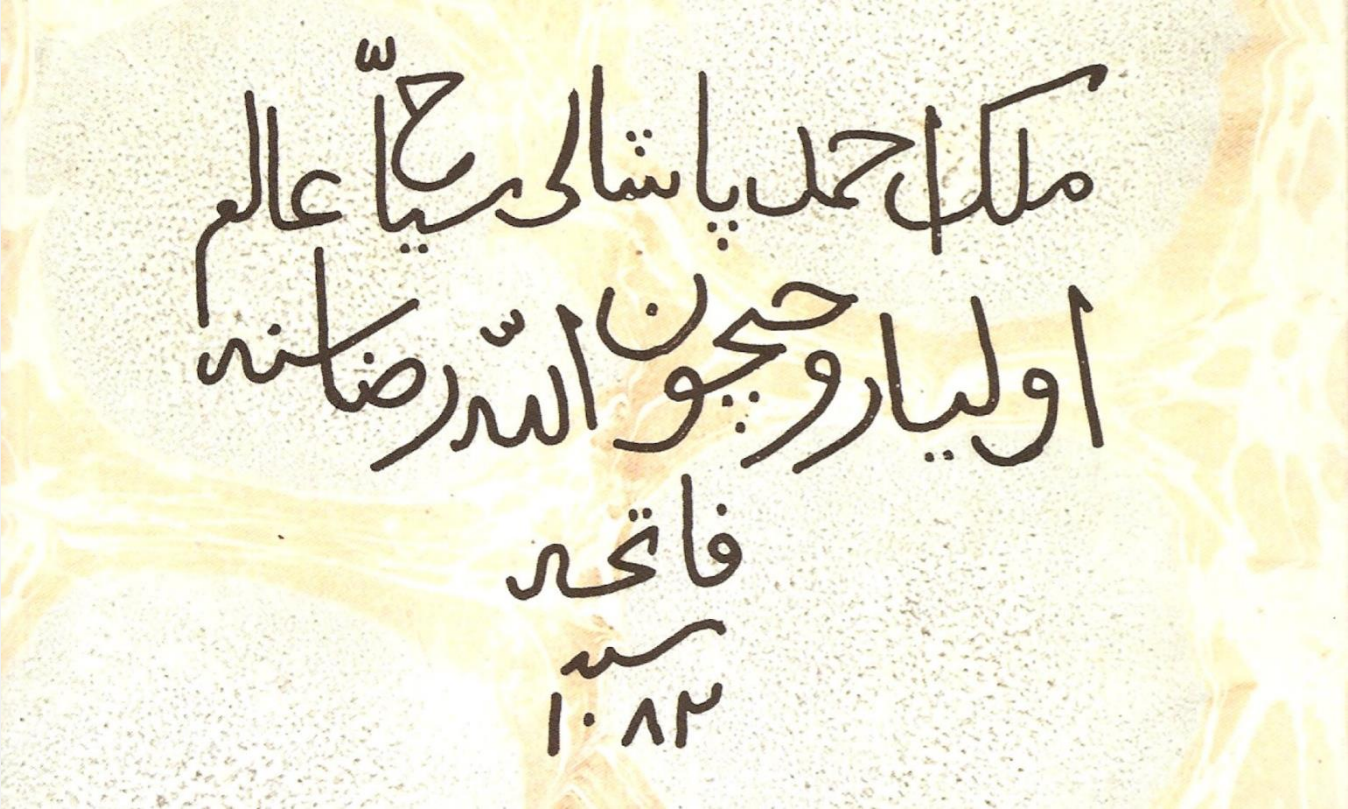 ملك احمد پاشالی سیّاح عالم
اولیا روحیچون اللّه رضاسنه
فاتحه
سنه
۱۰۸۳